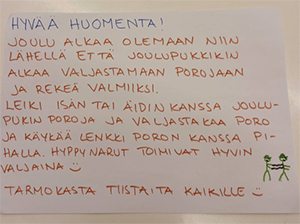 HYVÄÄ HUOMENTA!
JOULU ALKAA OLEMAAN NIIN
LÄHELLÄ ETTÄ JOULUPUKKIKIN
ALKAA VALJASTAMAAN POROJAAN
JA REKEÄ VALMIIKSI.
LEIKI ISÄN TAI ÄIDIN KANSSA JOULU-
PUKIN POROJA JA VALJASTAKAA PORO
JA KÄYKÄÄ LENKKI PORON KANSSA PI-
HALLA. HYPPYNARUT TOIMIVAT HYVIN
VALJAINA
TARMOKASTA TIISTAITA KAIKILLE